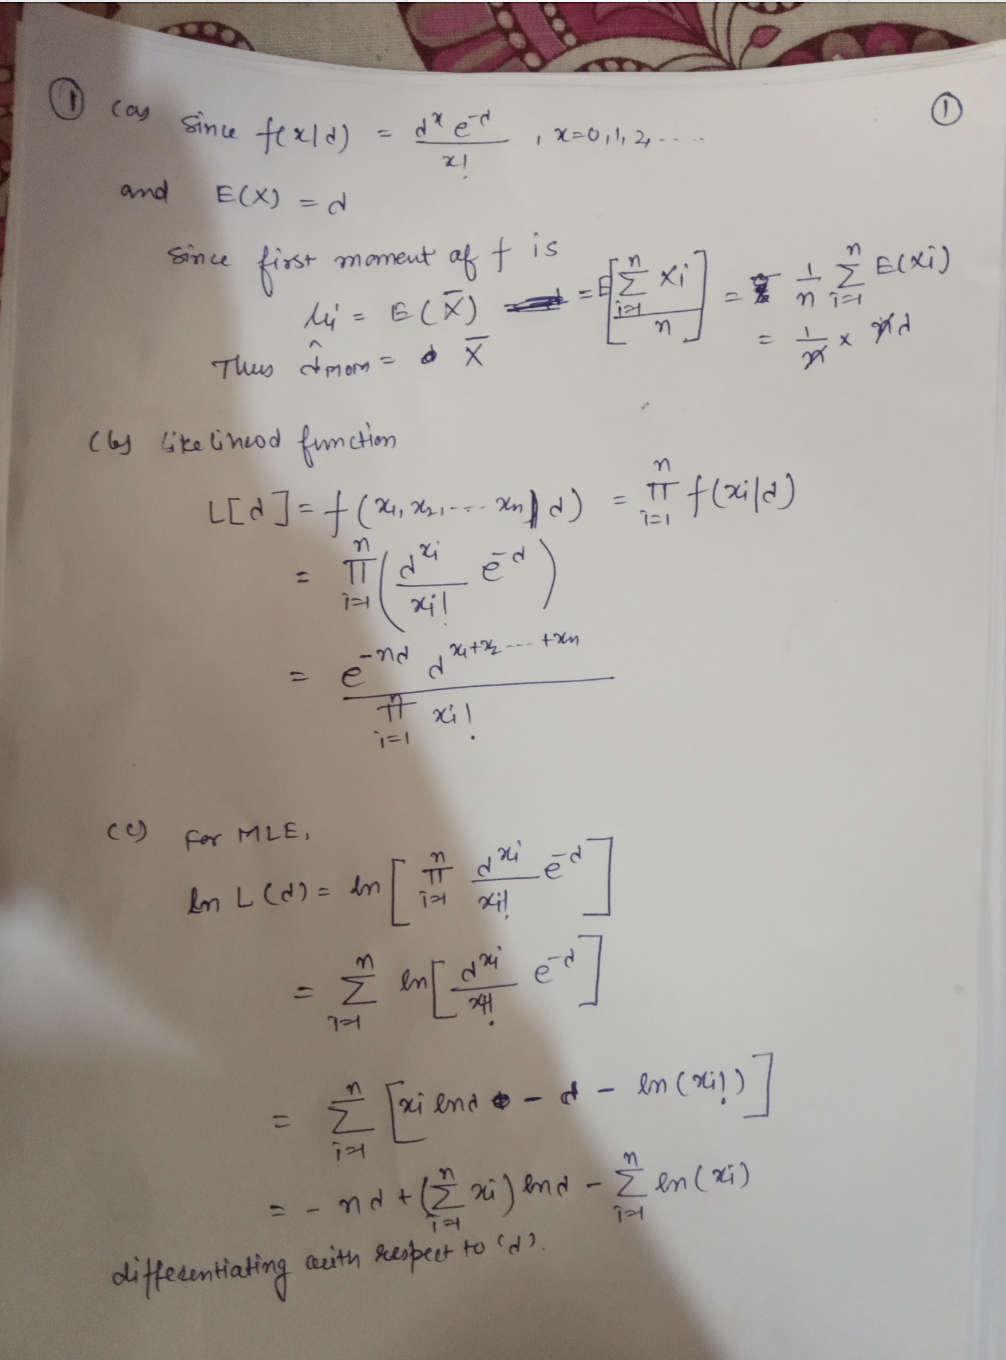 ① (a) Since f(x|d) = d^x e^-d / x! , x=0,1,2,.... ①
and E(X) = d
Since first moment of f is
μ1 = E(X̄) = E[Σ_{i=1}^{n} Xi / n] = 1/n Σ_{i=1}^{n} E(Xi)
= 1/n × nd
Thus d̂mom = X̄
(b) likelihood function
L[d] = f(x1, x2, .... xn | d) = Π_{i=1}^{n} f(xi|d)
= Π_{i=1}^{n} (d^xi / xi! e^-d)
= e^-nd d^x1+x2....+xn / Π_{i=1}^{n} xi!
(c) For MLE,
ln L(d) = ln [Π_{i=1}^{n} d^xi / xi! e^-d]
= Σ_{i=1}^{n} ln [d^xi / xi! e^-d]
= Σ_{i=1}^{n} [xi lnd - d - ln(xi!)]
= - nd + (Σ_{i=1}^{n} xi) lnd - Σ_{i=1}^{n} ln(xi)
differentiating with respect to 'd'.